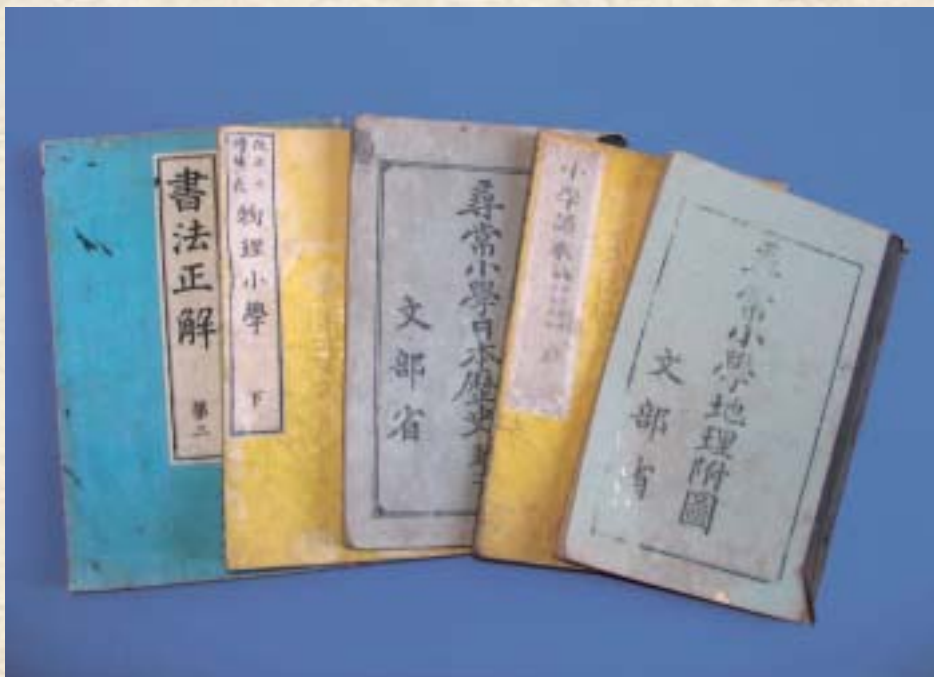 書法正解
第二
物理小學
下
尋常小學日本歴史
文部省
小學
尋常小學地理附圖
文部省